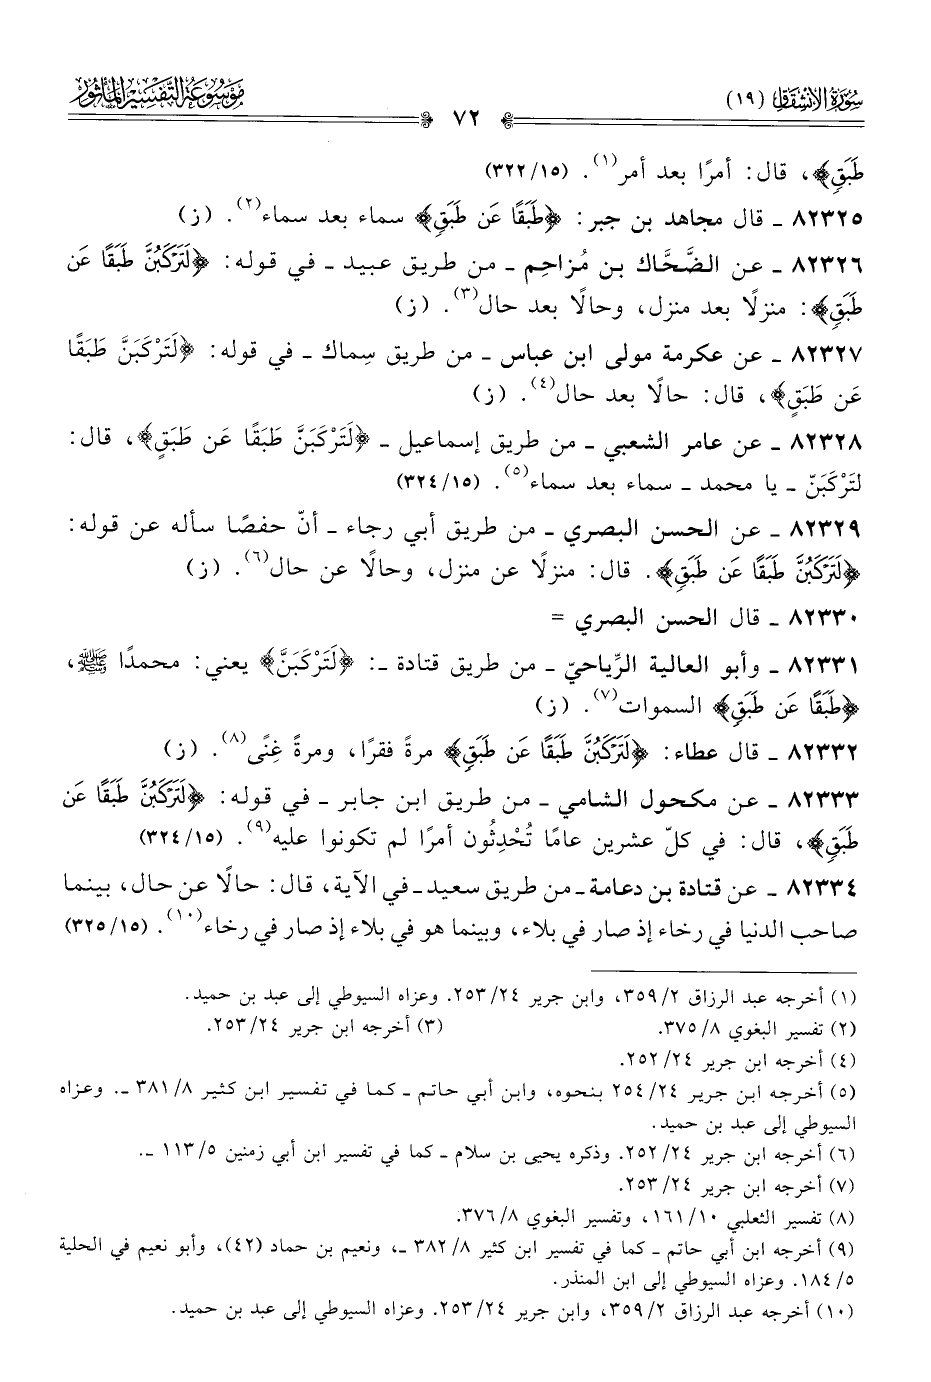 سُورَةُ الانشِقَاقِ (١٩)
٧٢
مَوْسُوعَةُ التَّفْسِيرِ المَأْثُورِ
طَبَقٍ﴾، قال: أمرًا بعد أمر(١). (٣٢٢/١٥)
٨٢٣٢٥ ـ قال مجاهد بن جبر: ﴿طَبَقًا عَن طَبَقٍ﴾ سماء بعد سماء(٢). (ز)
٨٢٣٢٦ ـ عن الضَّحَّاك بن مُزاحِم ـ من طريق عبيد ـ في قوله: ﴿لَتَرْكَبُنَّ طَبَقًا عَن
طَبَقٍ﴾: منزلًا بعد منزل، وحالًا بعد حال(٣). (ز)
٨٢٣٢٧ ـ عن عكرمة مولى ابن عباس ـ من طريق سِماك ـ في قوله: ﴿لَتَرْكَبَنَّ طَبَقًا
عَن طَبَقٍ﴾، قال: حالًا بعد حال(٤). (ز)
٨٢٣٢٨ ـ عن عامر الشعبي ـ من طريق إسماعيل ـ ﴿لَتَرْكَبَنَّ طَبَقًا عَن طَبَقٍ﴾، قال:
لتَرْكَبَنّ ـ يا محمد ـ سماء بعد سماء(٥). (٣٢٤/١٥)
٨٢٣٢٩ ـ عن الحسن البصري ـ من طريق أبي رجاء ـ أنّ حفصًا سأله عن قوله:
﴿لَتَرْكَبُنَّ طَبَقًا عَن طَبَقٍ﴾. قال: منزلًا عن منزل، وحالًا عن حال(٦). (ز)
٨٢٣٣٠ ـ قال الحسن البصري =
٨٢٣٣١ ـ وأبو العالية الرِّياحيّ ـ من طريق قتادة ـ: ﴿لَتَرْكَبَنَّ﴾ يعني: محمدًا ﷺ،
﴿طَبَقًا عَن طَبَقٍ﴾ السموات(٧). (ز)
٨٢٣٣٢ ـ قال عطاء: ﴿لَتَرْكَبُنَّ طَبَقًا عَن طَبَقٍ﴾ مرةً فقرًا، ومرةً غِنًى(٨). (ز)
٨٢٣٣٣ ـ عن مكحول الشامي ـ من طريق ابن جابر ـ في قوله: ﴿لَتَرْكَبُنَّ طَبَقًا عَن
طَبَقٍ﴾، قال: في كلّ عشرين عامًا تُحْدِثُون أمرًا لم تكونوا عليه(٩). (٣٢٤/١٥)
٨٢٣٣٤ ـ عن قتادة بن دعامة ـ من طريق سعيد ـ في الآية، قال: حالًا عن حال، بينما
صاحب الدنيا في رخاء إذ صار في بلاء، وبينما هو في بلاء إذ صار في رخاء(١٠). (٣٢٥/١٥)
(١) أخرجه عبد الرزاق ٣٥٩/٢، وابن جرير ٢٥٣/٢٤. وعزاه السيوطي إلى عبد بن حميد.
(٢) تفسير البغوي ٣٧٥/٨. (٣) أخرجه ابن جرير ٢٥٣/٢٤.
(٤) أخرجه ابن جرير ٢٥٢/٢٤.
(٥) أخرجه ابن جرير ٢٥٤/٢٤ بنحوه، وابن أبي حاتم ـ كما في تفسير ابن كثير ٣٨١/٨ ـ. وعزاه
السيوطي إلى عبد بن حميد.
(٦) أخرجه ابن جرير ٢٥٢/٢٤. وذكره يحيى بن سلام ـ كما في تفسير ابن أبي زمنين ١١٣/٥ ـ.
(٧) أخرجه ابن جرير ٢٥٣/٢٤.
(٨) تفسير الثعلبي ١٦١/١٠، وتفسير البغوي ٣٧٦/٨.
(٩) أخرجه ابن أبي حاتم ـ كما في تفسير ابن كثير ٣٨٢/٨ ـ، ونعيم بن حماد (٤٢)، وأبو نعيم في الحلية
١٨٤/٥. وعزاه السيوطي إلى ابن المنذر.
(١٠) أخرجه عبد الرزاق ٣٥٩/٢، وابن جرير ٢٥٣/٢٤. وعزاه السيوطي إلى عبد بن حميد.